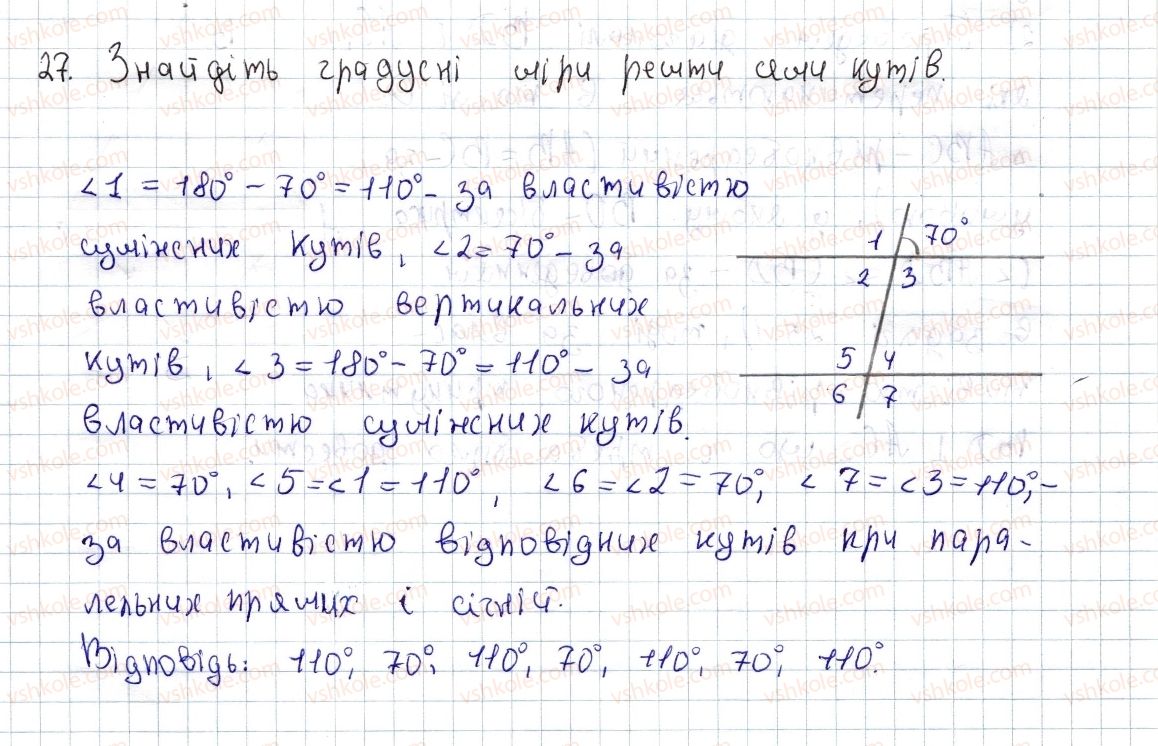 27. Знайдіть градусні міри решти семи кутів.
<1 = 180° - 70° = 110° - за властивістю
суміжних кутів, <2 = 70° - за
властивістю вертикальних
кутів, <3 = 180° - 70° = 110° - за
властивістю суміжних кутів.
<4 = 70°, <5 = <1 = 110°, <6 = <2 = 70°, <7 = <3 = 110°, -
за властивістю відповідних кутів при пара-
лельних прямих і січній.
Відповідь: 110°, 70°, 110°, 70°, 110°, 70°, 110°.
1 70°
2 3
5 4
6 7
vshkole.com